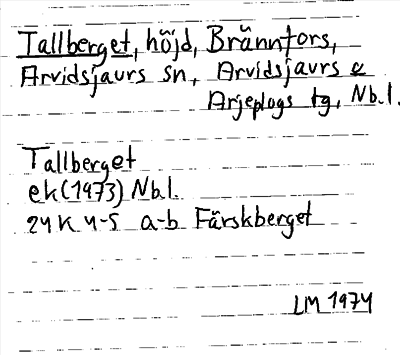 Tallberget, höjd, Brännfors,
Arvidsjaurs sn, Arvidsjaurs &
Arjeplogs tg, Nb.l.
Tallberget
ek (1973) Nb.l.
24K 4-5 a-b Färskberget
LM 1974